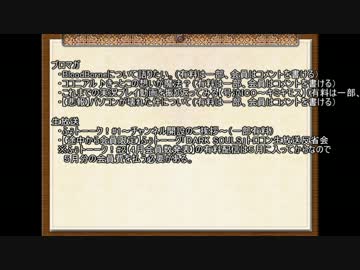 ブロマガ
・BloodBorneについて語りたい。(有料は一部、会員はコメントを書ける)
・ココニアル♪きっとこの想いが魔法？(有料は一部、会員はコメントを書ける)
・これまでの実況プレイ動画を振り返ってみる(有料は一部、
・【悲報】パソコンが壊れた件について(有料は一部、会員はコメントを書ける)
生放送
・ふぅトーーク！#1～チャンネル開設のご挨拶～(一部有料)
・【途中から会員限定】ふぅトーーク！「DARK SOULS」トロコン生放送反省会
※ふぅトーーク！#2【4月会員数発表】の有料配信は5月に入ってからなので
5月分の会員費を払う必要がある。